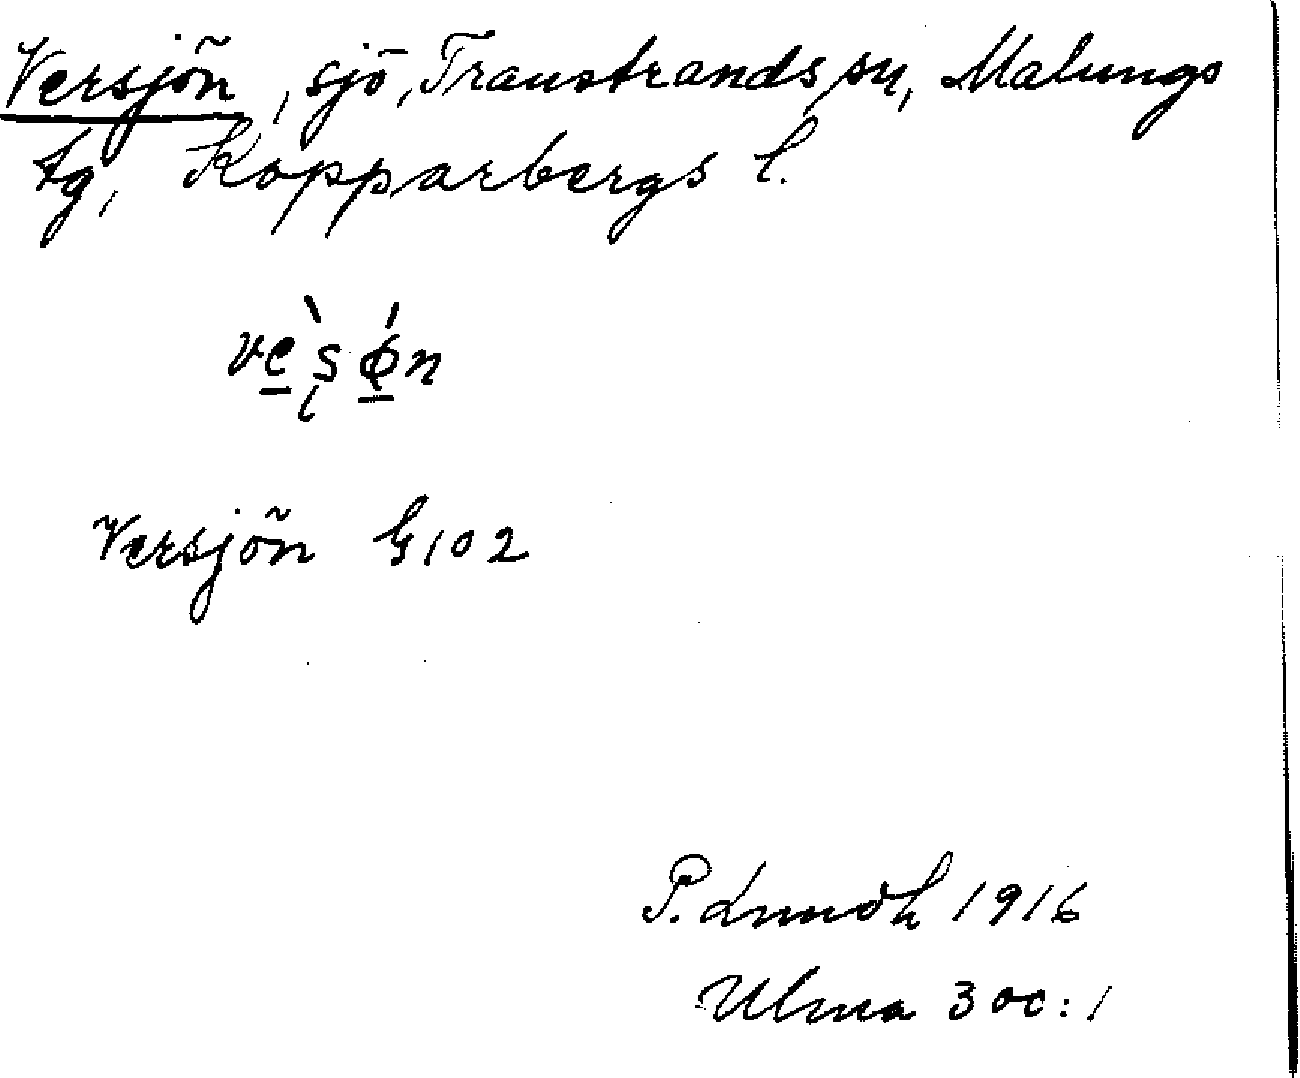 Versjön, sjö, Transtrands sn, Malungs
tg, Kopparbergs l.
Versjön G102
P. Lundh 1916
Ulma 300:1